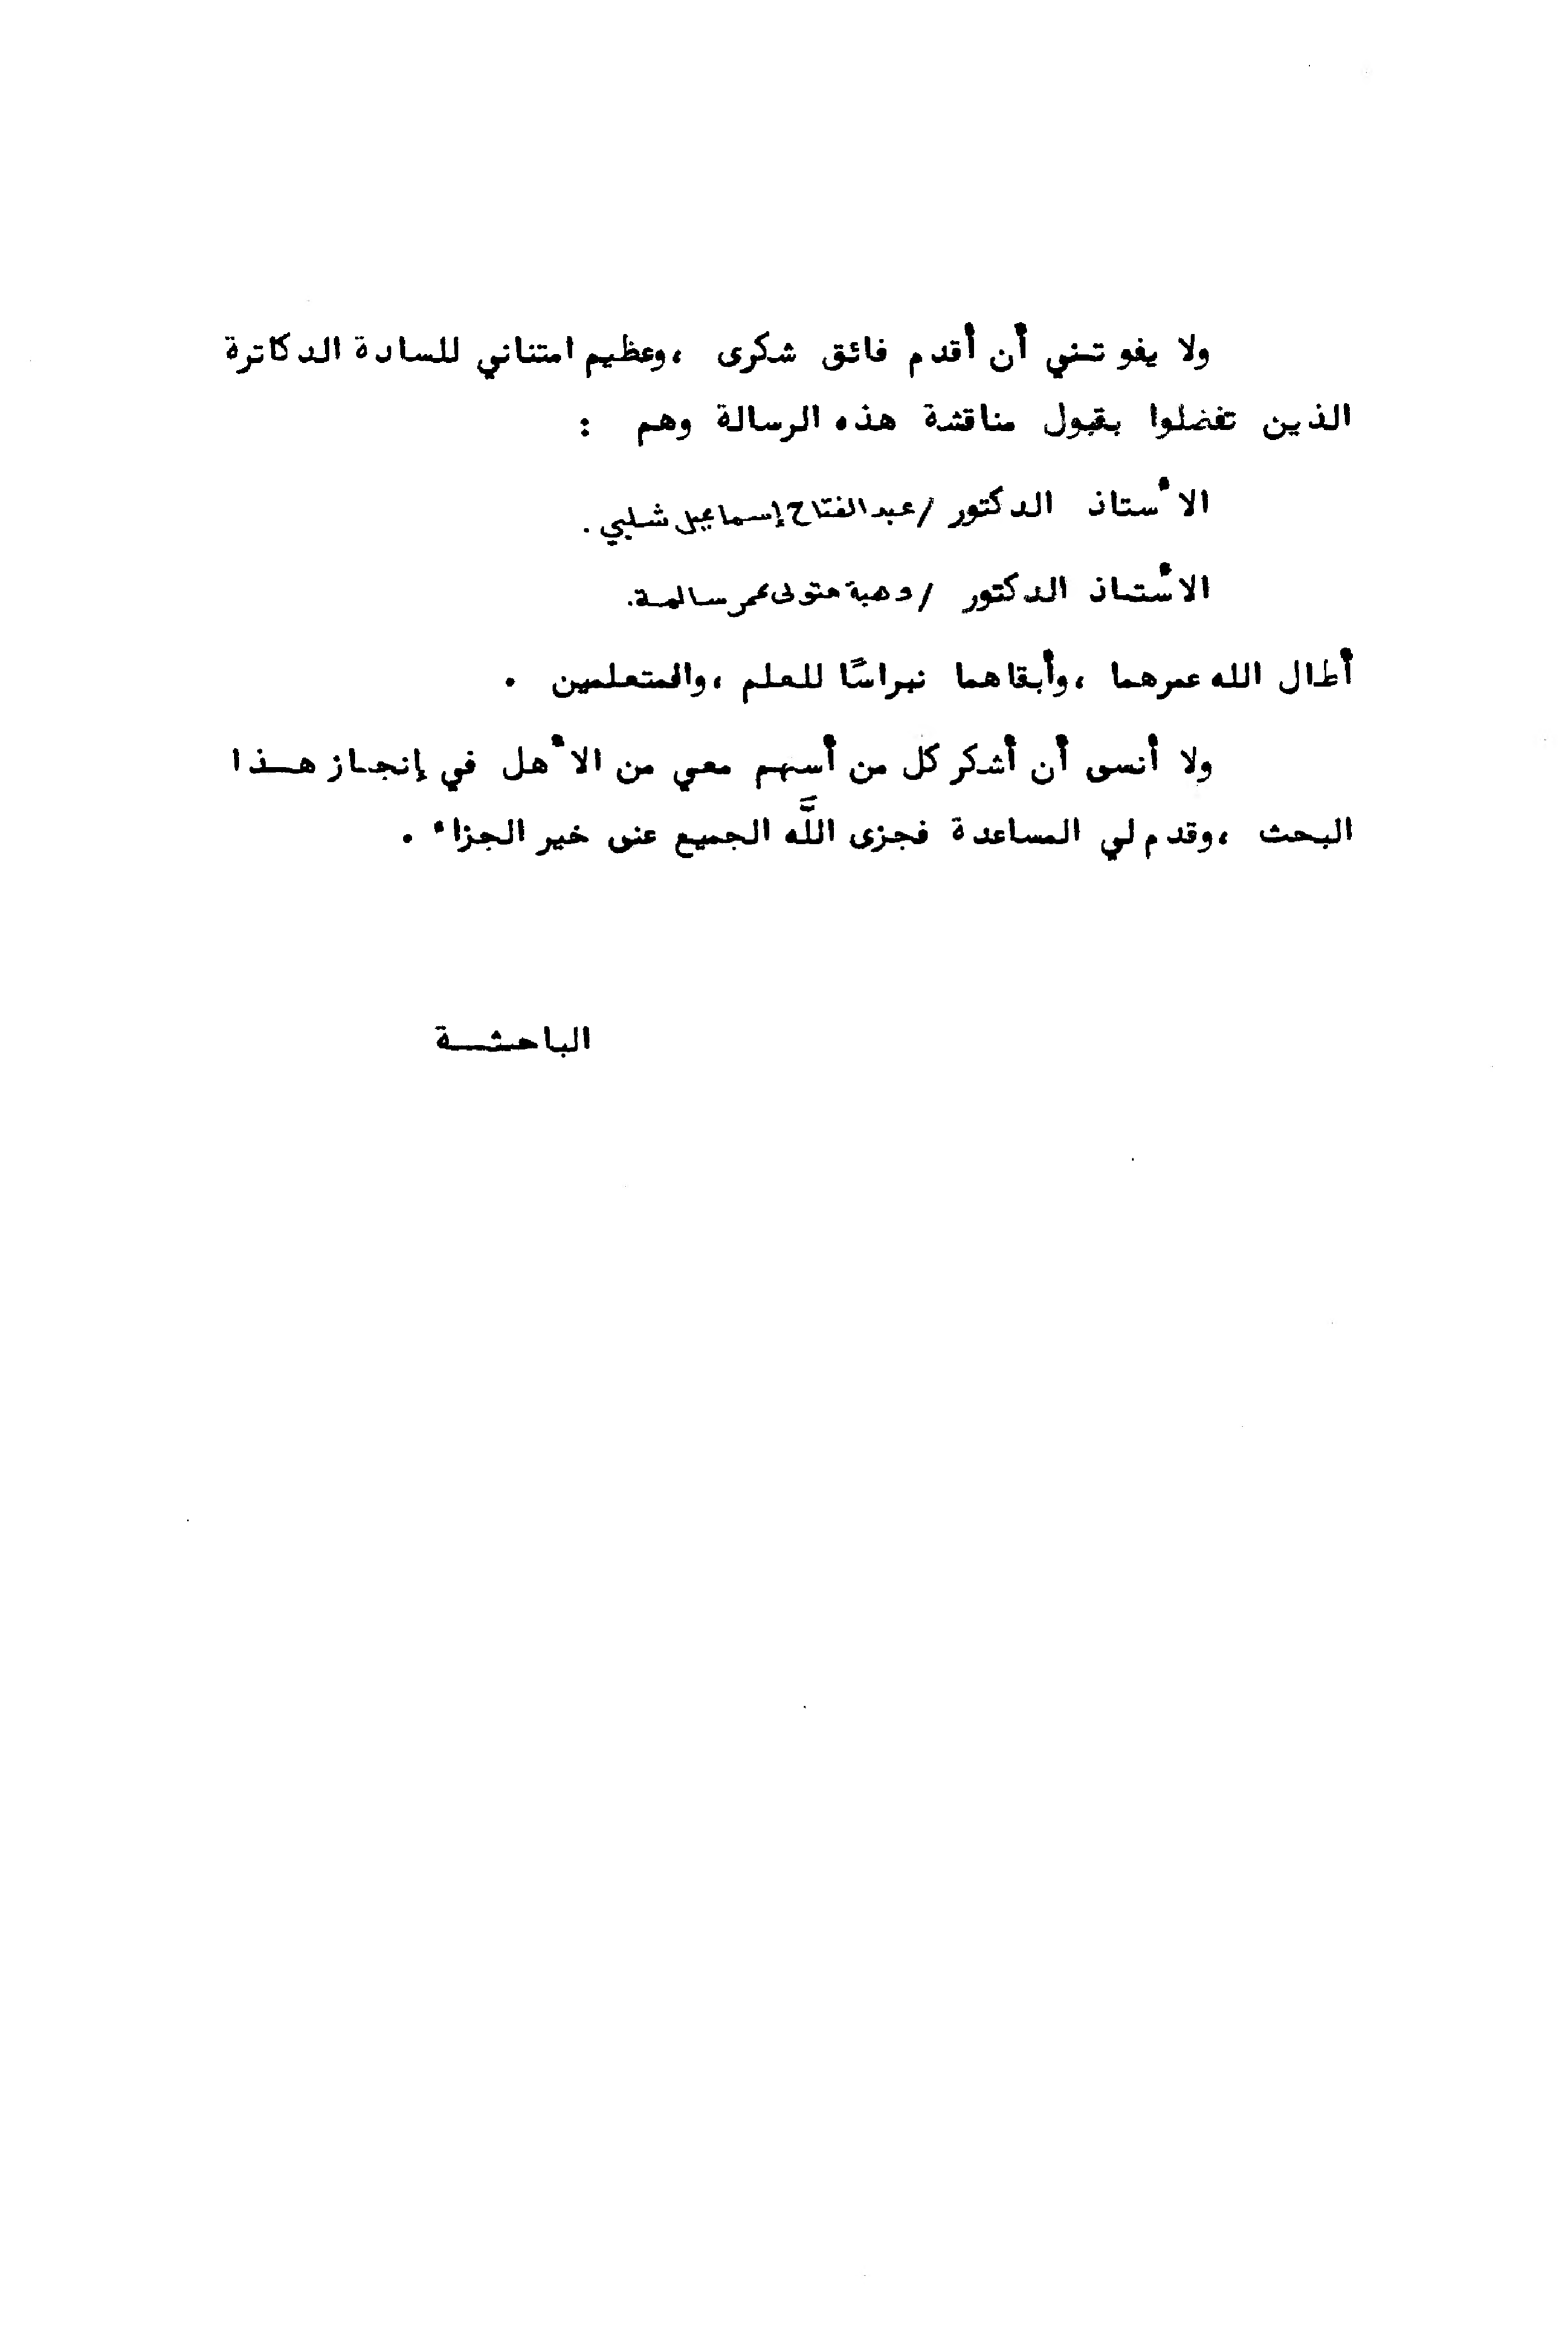 ولا يفوتني أن أقدم فائق شكرى ،وعظيم امتناني للسادة الدكاترة
الذين تفضلوا بقبول مناقشة هذه الرسالة وهم :
الأستاذ الدكتور /عبد الفتاح إسماعيل شلبي .
الأستاذ الدكتور /وهبة متولى عمر سالمة.
أطال الله عمرهما ،وأبقاهما نبراسًا للعلم ،والمتعلمين .
ولا أنسى أن أشكر كل من أسهم معي من الأهل في إنجاز هـذا
البحث ،وقدم لي المساعدة فجزى اللَّه الجميع عنى خير الجزاء .
الباحثـة